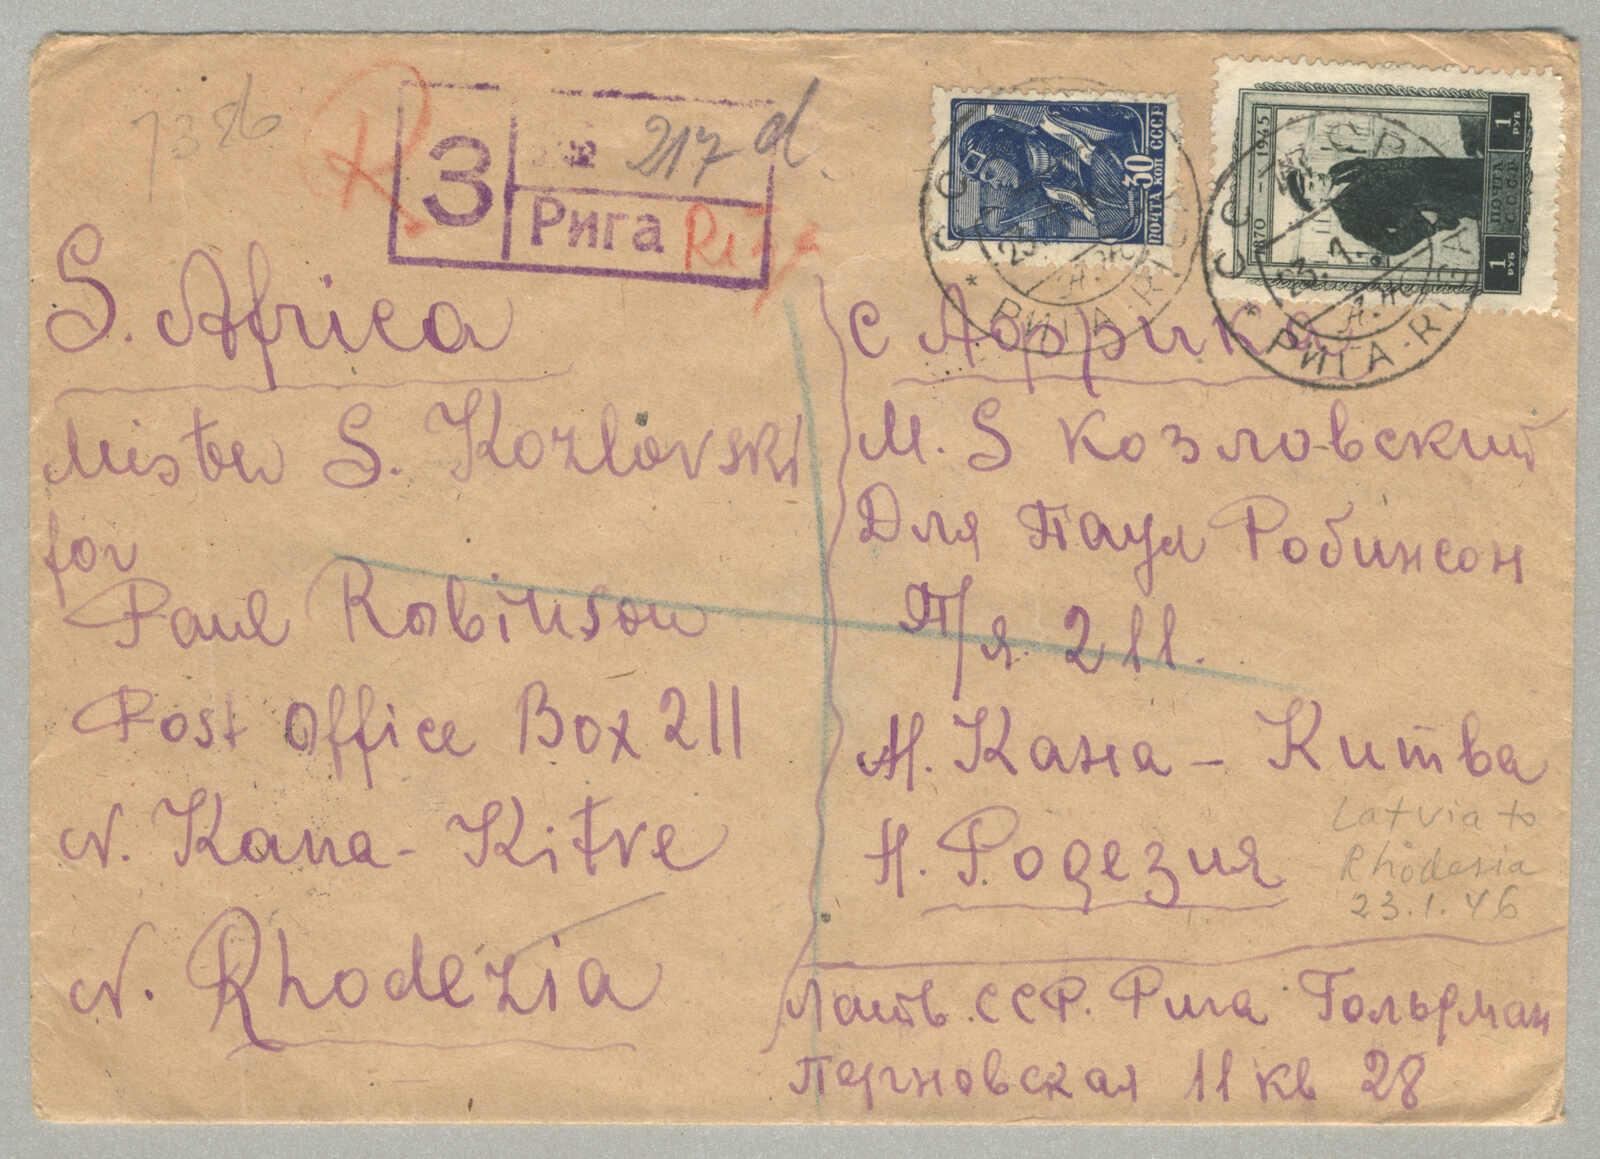 7386
R
З
№ 217 d.
Рига Riga
30
ПОЧТА КОП СССР
1870 - 1945
1 РУБ
ПОЧТА С.С.С.Р.
1 РУБ
С С С Р
РИГА-RIGA
С С С Р
23. 1.
РИГА-RIGA
S. Africa
Mister S. Kozlovski
for
Paul Robinson
Post Office Box 211
N. Kana-Kitve
N. Rhodezia
С Африка
М. S Козловский
Для Паул Робинсон
П/я. 211.
Н. Кана - Китва
Н. Родезия
Latvia to
Rhodesia
23.1.46
Латв. ССР. Рига Гольдман
Перновская 11 кв 28